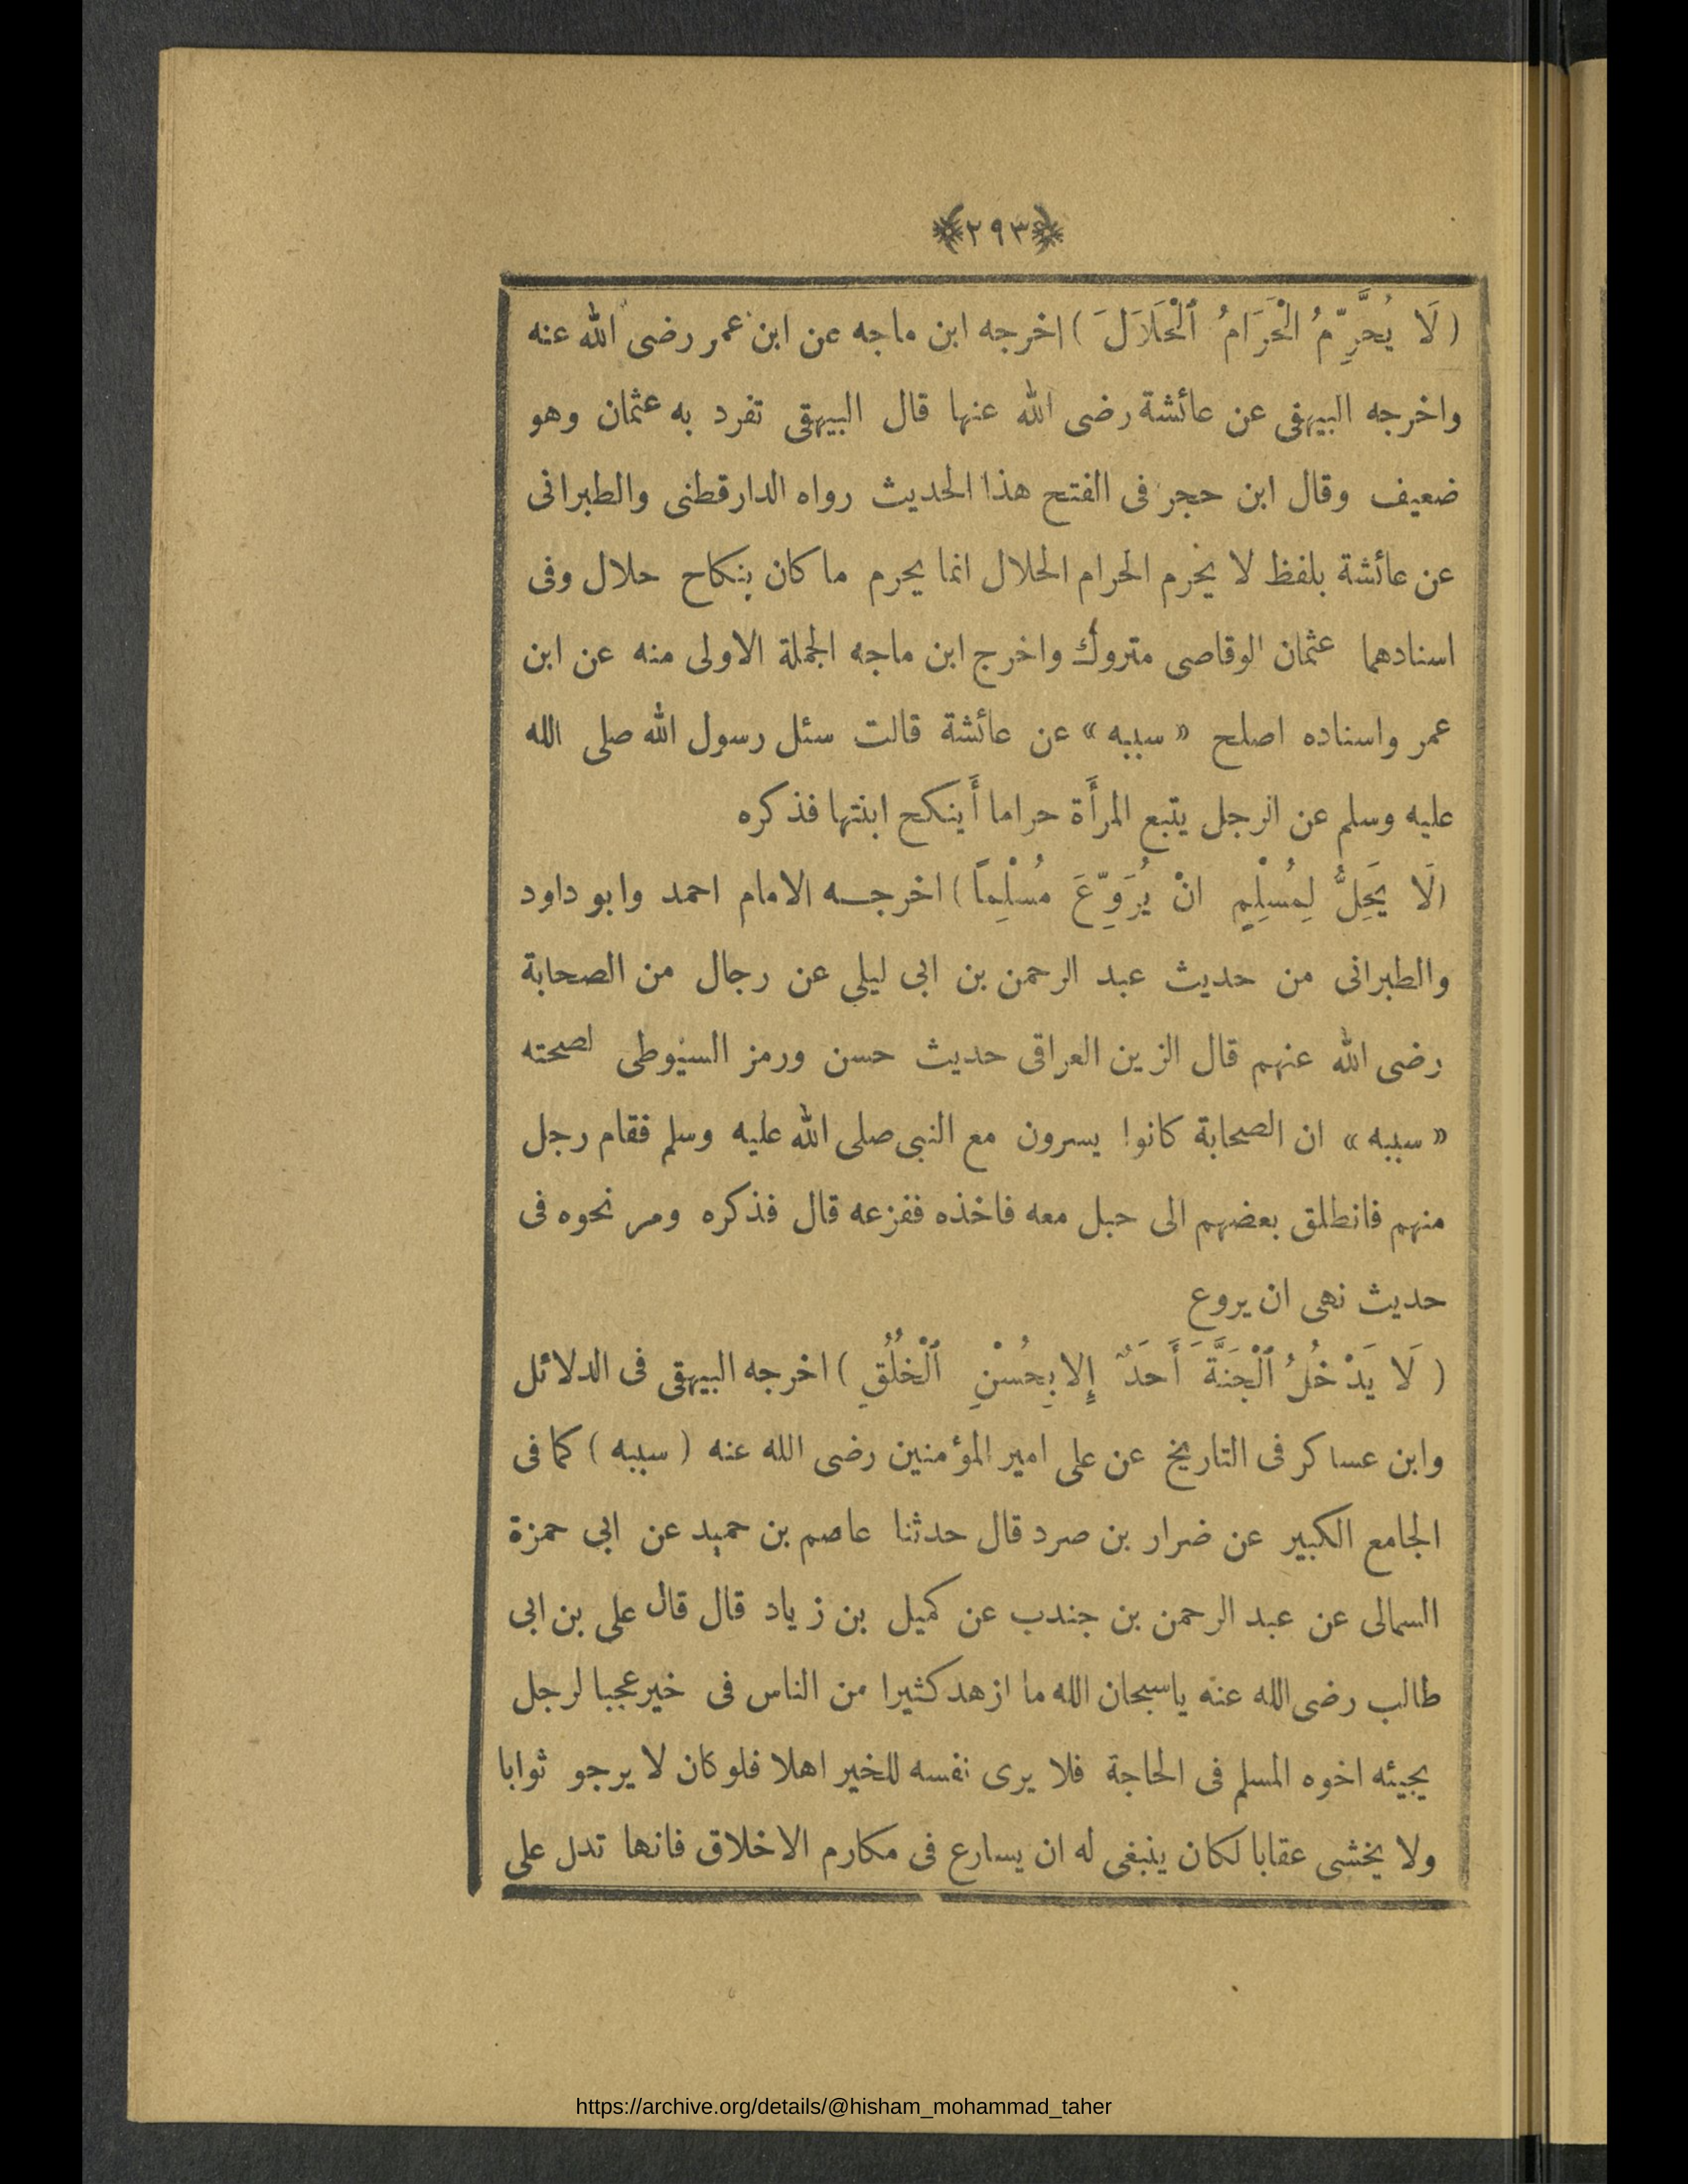 ﴿٢٩٣﴾
( لَا يُحَرِّمُ الْحَرَامُ ٱلْحَلَالَ ) اخرجه ابن ماجه عن ابن عمر رضى الله عنه
واخرجه البيهقى عن عائشة رضى الله عنها قال البيهقى تفرد به عثمان وهو
ضعيف وقال ابن حجر فى الفتح هذا الحديث رواه الدارقطنى والطبرانى
عن عائشة بلفظ لا يحرم الحرام الحلال انما يحرم ما كان بنكاح حلال وفى
اسنادهما عثمان الوقاصى متروك واخرج ابن ماجه الجملة الاولى منه عن ابن
عمر واسناده اصلح « سببه » عن عائشة قالت سئل رسول الله صلى الله
عليه وسلم عن الرجل يتبع المرأَة حراما أَينكح ابنتها فذكره
(لَا يَحِلُّ لِمُسْلِمٍ انْ يُرَوِّعَ مُسْلِماً ) اخرجه الامام احمد وابو داود
والطبرانى من حديث عبد الرحمن بن ابى ليلى عن رجال من الصحابة
رضى الله عنهم قال الزين العراقى حديث حسن ورمز السيوطى لصحته
« سببه » ان الصحابة كانوا يسرون مع النبى صلى الله عليه وسلم فقام رجل
منهم فانطلق بعضهم الى حبل معه فاخذه ففزعه قال فذكره ومر نحوه فى
حديث نهى ان يروع
( لَا يَدْخُلُ ٱلْجَنَّةَ أَحَدٌ إِلا بِحُسْنِ ٱلْخُلُقِ ) اخرجه البيهقى فى الدلائل
وابن عساكر فى التاريخ عن على امير المؤمنين رضى الله عنه ( سببه ) كما فى
الجامع الكبير عن ضرار بن صرد قال حدثنا عاصم بن حميد عن ابى حمزة
السمالى عن عبد الرحمن بن جندب عن كميل بن زياد قال قال على بن ابى
طالب رضى الله عنه ياسبحان الله ما ازهد كثيرا من الناس فى خير عجبا لرجل
يجيئه اخوه المسلم فى الحاجة فلا يرى نفسه للخير اهلا فلو كان لا يرجو ثوابا
ولا يخشى عقابا لكان ينبغى له ان يسارع فى مكارم الاخلاق فانها تدل على
https://archive.org/details/@hisham_mohammad_taher